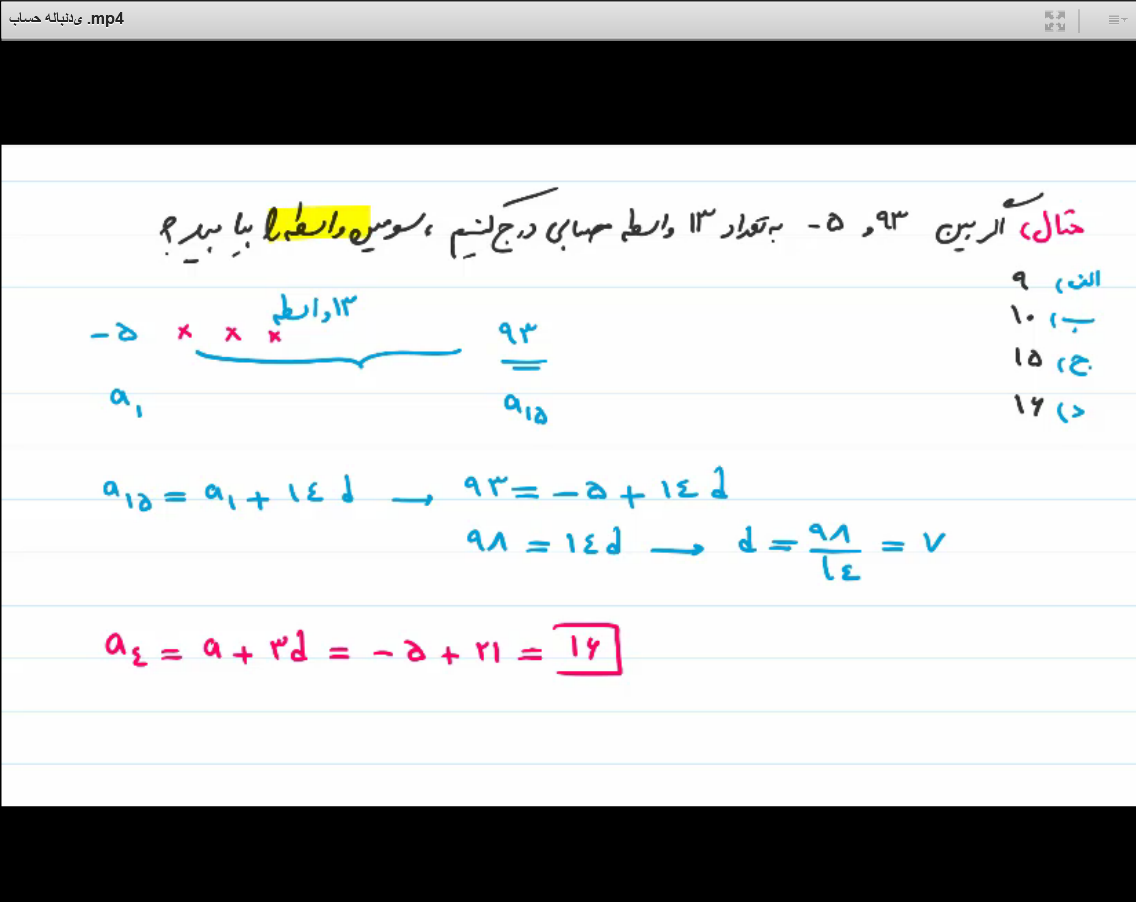 ی‌دنباله حساب .mp4
مثال، اگر بین ۹۳ و ۵- به تعداد ۱۳ واسطه حسابی درج کنیم، سومین واسطه را بیابید؟
الف) ۹
ب) ۱۰
ج) ۱۵
د) ۱۶
۱۳ واسطه
-۵ × × × ۹۳
a₁ a₁₅
a₁₅ = a₁ + ۱٤ d → ۹۳ = -۵ + ۱٤ d
۹۸ = ۱٤d → d = ۹۸/۱٤ = ۷
a₄ = a + ۳d = -۵ + ۲۱ = ۱۶